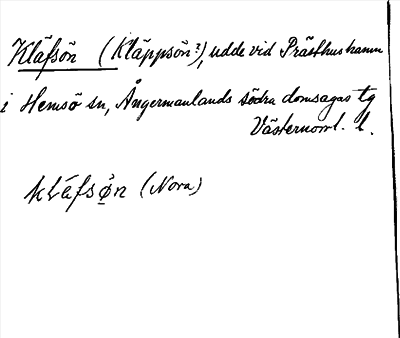 Kläfsön (Kläppsön?), udde vid Prästhushamn
i Hemsö sn, Ångermanlands södra domsagas tg
Västernorrl. l.
klǟfsø̀n (Nora)